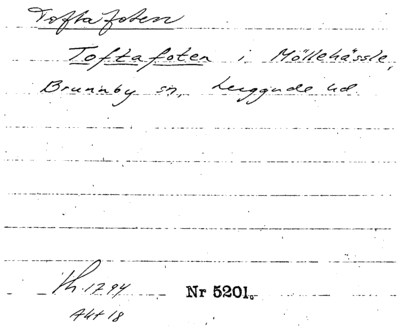 Toftafoten
Toftafoten i Möllehässle,
Brunnby sn, Luggude hd.
Nr 5201.
1794
Akt 18